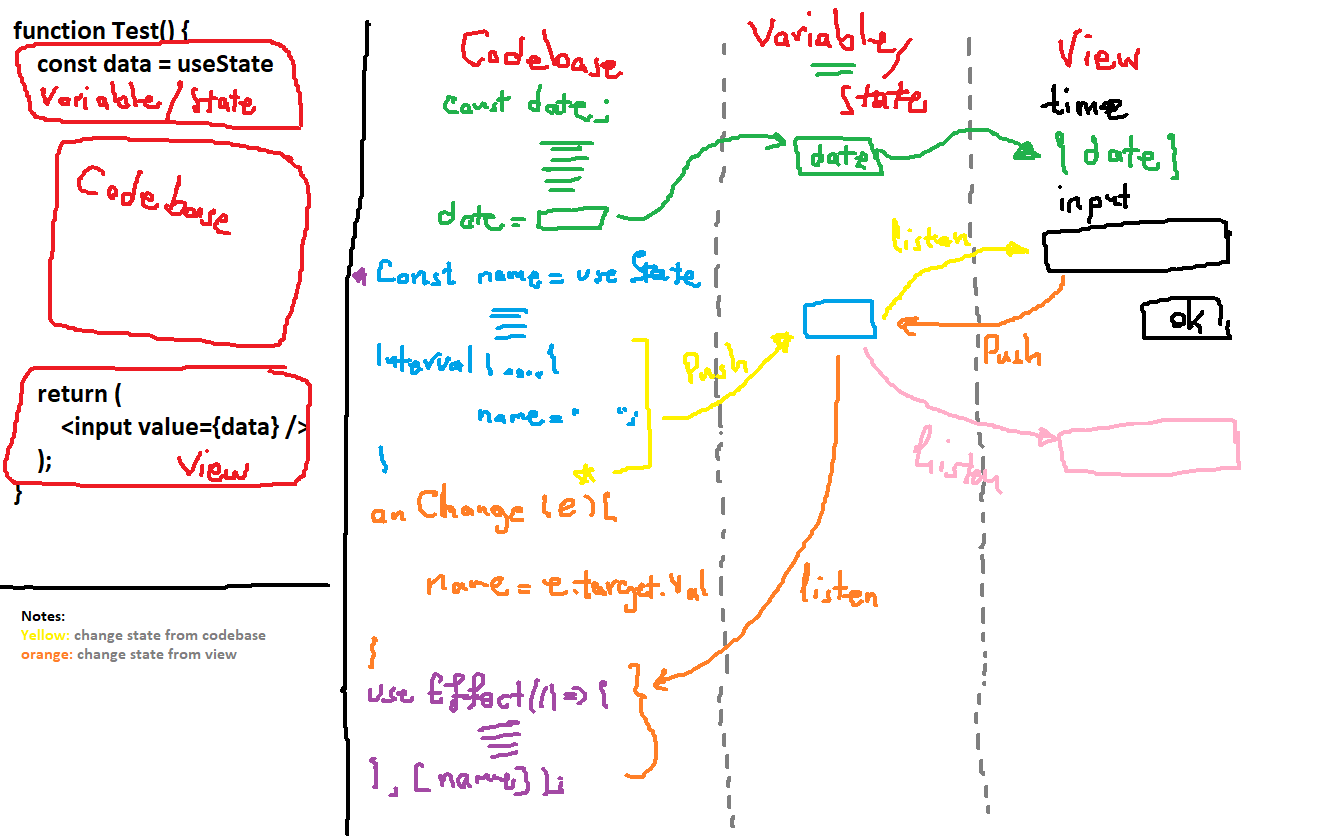 function Test() {
const data = useState
Variable / State
Codebase
return (
<input value={data} />
);
View
}
Notes:
Yellow: change state from codebase
orange: change state from view
Codebase
const date;
date =
Const name = use State
Interval (....{
name = " ";
}
on Change (e) {
name = e.target.val
}
use Effect(() => {
}, [name]);
Variable/
State
date
Push
listen
Push
listen
listen
View
time
[ date ]
input
ok